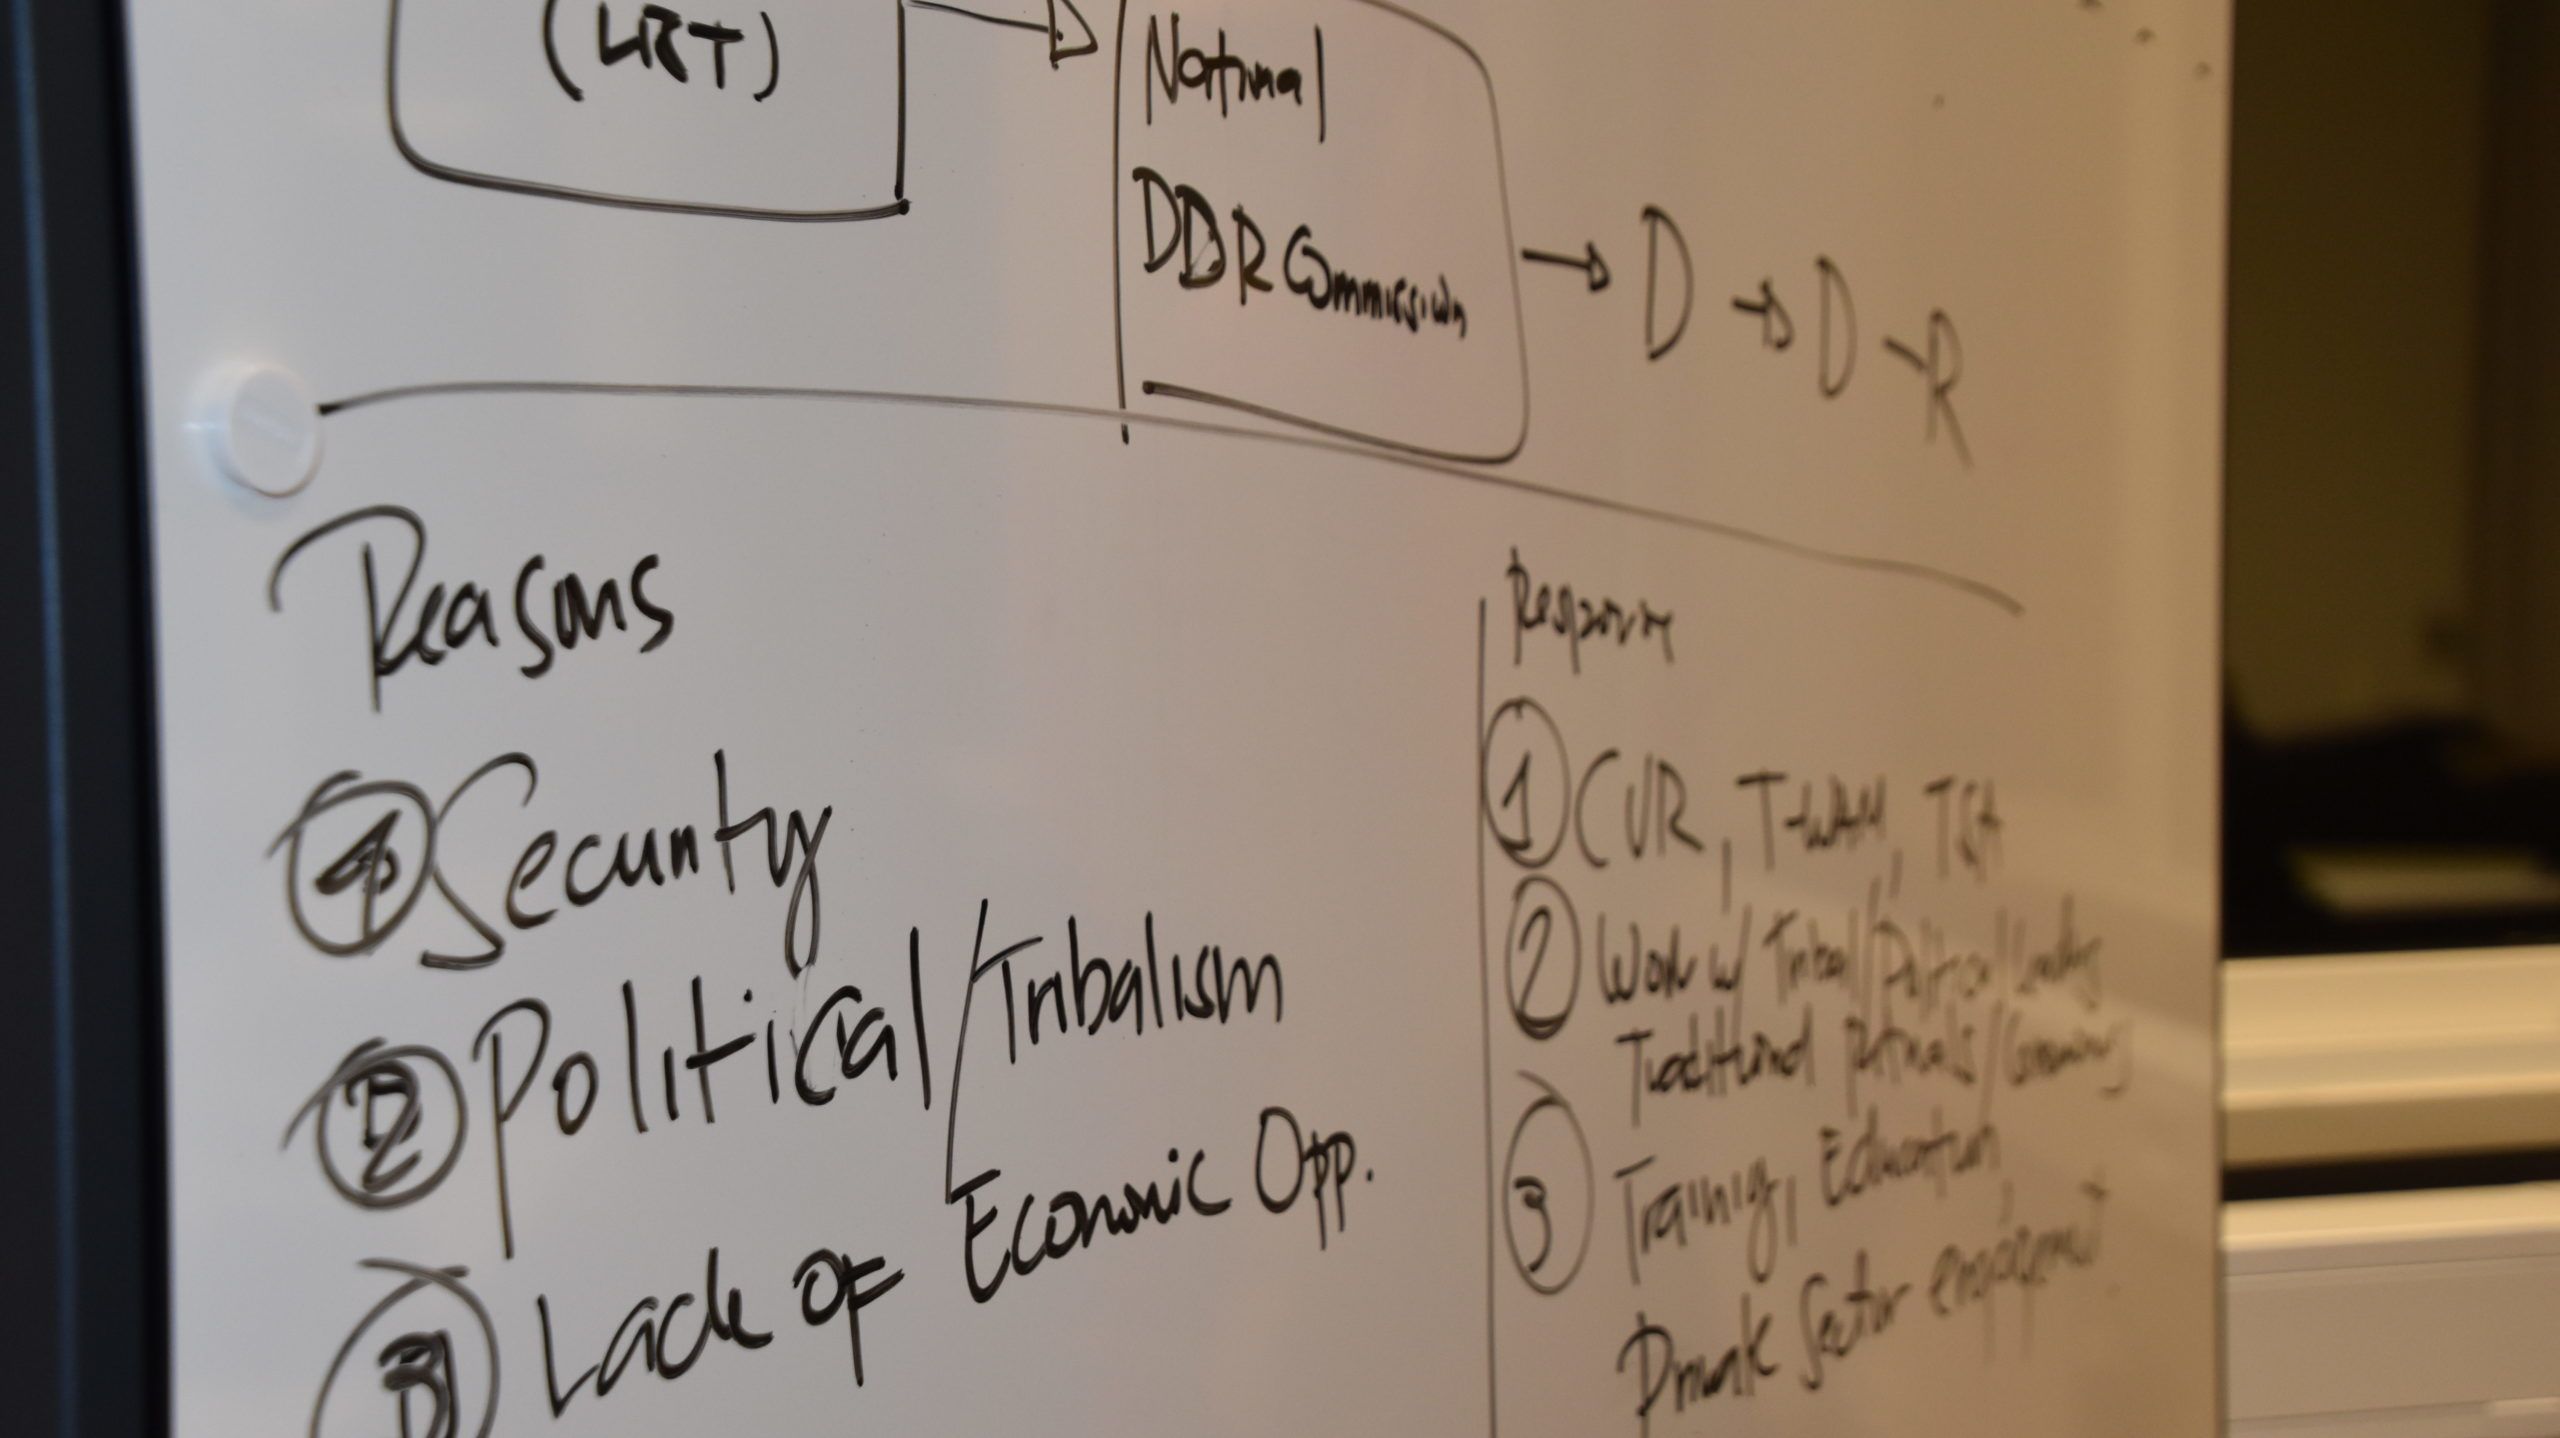 National
DDR Commission
D → D → R
Reasons
① Security
② Political/Tribalism
③ Lack of Economic Opp.
Response
① CVR, T-WAM, TSA
② Work w/ Tribal/Political
Traditional
③ Training, Education,
Private Sector engagement